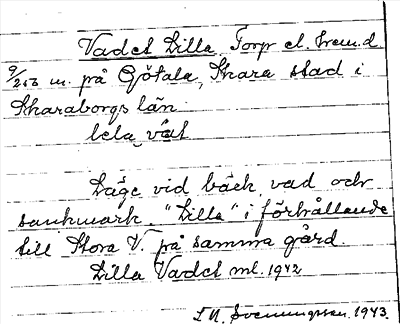 Vadet Lilla, Torp el. hem.d.
9/256 m. på Götala, Skara stad i
Skaraborgs län.
lela vat
Läge vid bäck, vad och
sankmark. "Lilla" i förhållande
till Stora V. på samma gård.
Lilla Vadet ml. 1942
Svenungsson. 1943.